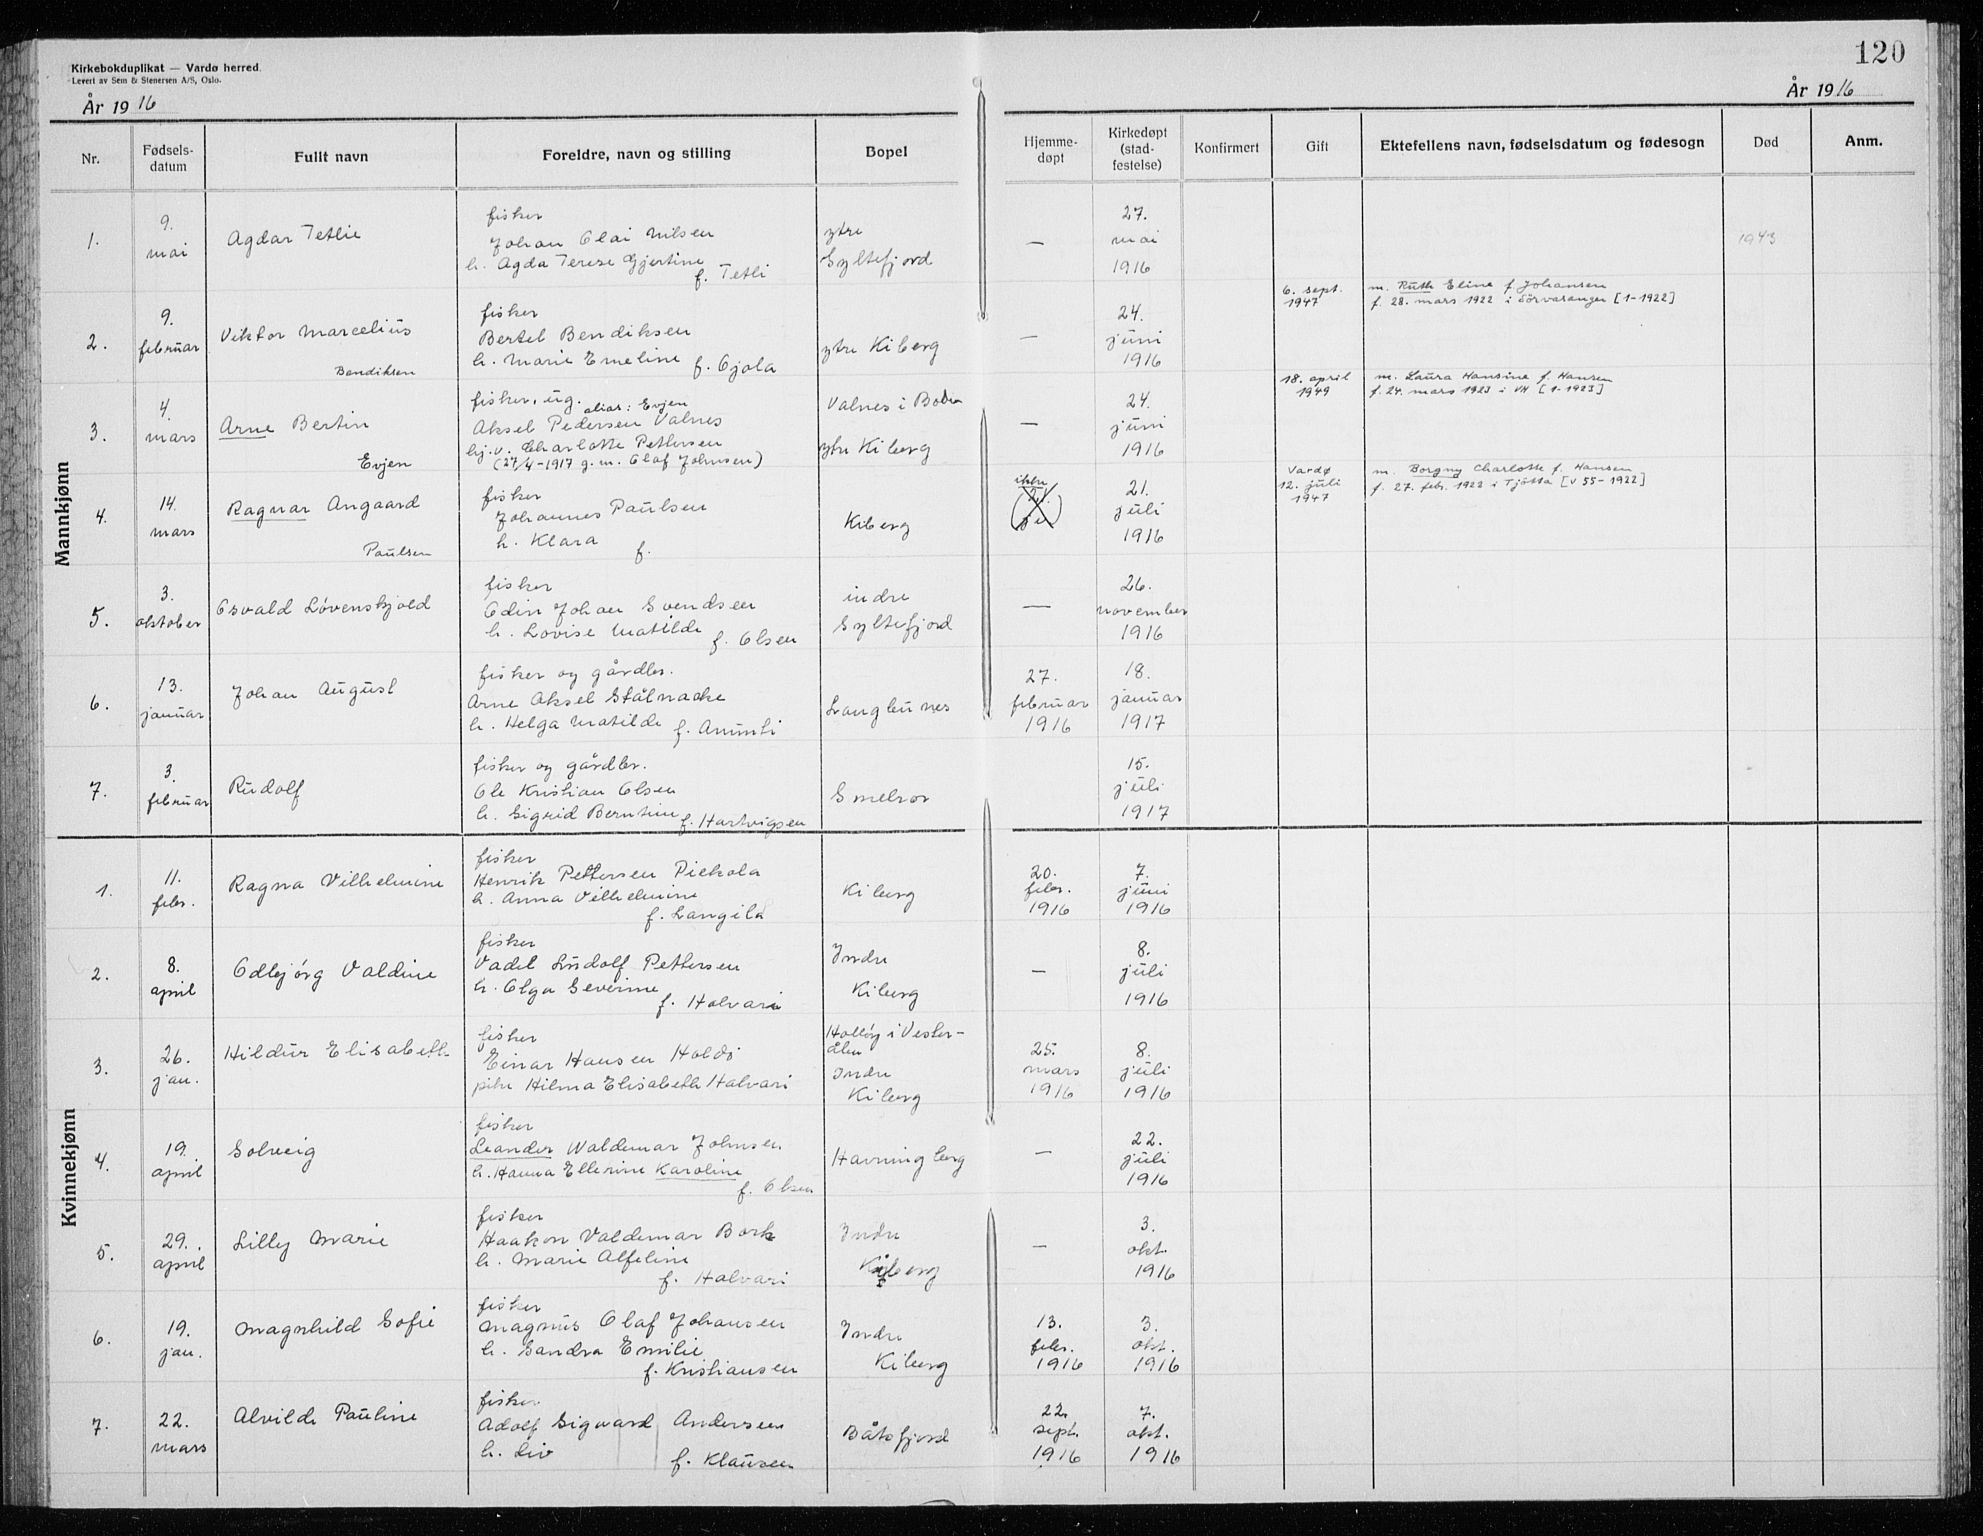 Kirkebokduplikat — Vardø herred.
Levert av Sem & Stenersen A/S, Oslo.
År 1916
120
År 1916
Nr.
Fødsels-
datum
Fullt navn
Foreldre, navn og stilling
Bopel
Hjemme-
døpt
Kirkedøpt
(stad-
festelse)
Konfirmert
Gift
Ektefellens navn, fødselsdatum og fødesogn
Død
Anm.
Mannkjønn
1.
9.
mai
Agdar Tetlie
fisker
Johan Olai Nilsen
h. Agda Terese Gjertine
f. Tetli
ytre
Syltefjord
—
27.
mai
1916
1943
2.
9.
februar
Viktor Marcelius
Bendiksen
fisker
Bertel Bendiksen
h. Marie Emeline f. Ojola
ytre Kiberg
—
24.
juni
1916
6. sept.
1947
m. Ruth Eline f. Johansen
f. 28. mars 1922 i Sörvaranger [1-1922]
3.
4.
mars
Arne Bertin
Evjen
fisker, ug. alias: Evjen
Aksel Pedersen Valnes
hj. v. Charlotte Pettersen
(27/4-1917 g. m. Olaf Johnsen)
Valnes i Bodin
ytre Kiberg
—
24.
juni
1916
18. april
1949
m. Laura Hansine f. Hansen
f. 24. mars 1923 i VH [1-1923]
4.
14.
mars
Ragnar Angaard
Paulsen
fisker
Johannes Paulsen
h. Klara f.
Kiberg
ikke
21.
juli
1916
Vardø
12. juli
1947
m. Borgny Charlotte f. Hansen
f. 27. febr. 1922 i Tjötta [V 55-1922]
5.
3.
oktober
Osvald Løvenskjold
fisker
Odin Johan Svendsen
h. Lovise Matilde f. Olsen
indre
Syltefjord
—
26.
november
1916
6.
13.
januar
Johan August
fisker og gårdbr.
Arne Aksel Stålnacke
h. Helga Matilde f. Anunti
Langbunes
27.
februar
1916
18.
januar
1917
7.
3.
februar
Rudolf
fisker og gårdbr.
Ole Kristian Olsen
h. Sigrid Berntine f. Hartvigsen
Smelror
15.
juli
1917
Kvinnekjønn
1.
11.
febr.
Ragna Vilhelmine
fisker
Henrik Pettersen Piekola
h. Anna Vilhelmine
f. Langila
Kiberg
20.
febr.
1916
7.
juni
1916
2.
8.
april
Odbjörg Valdine
fisker
Vadel Ludolf Pettersen
h. Olga Severine
f. Halvari
Indre
Kiberg
—
8.
juli
1916
3.
26.
jan.
Hildur Elisabeth
fisker
Einar Hansen Haldö
pike Hilma Elisabeth Halvari
i Vester-
ålen
Indre
Kiberg
25.
mars
1916
8.
juli
1916
4.
19.
april
Solveig
fisker
Leander Waldemar Johnsen
h. Hanna Ellerine Karoline
f. Olsen
Havningberg
—
22.
juli
1916
5.
29.
april
Lilly Marie
fisker
Haakon Valdemar Bork
h. Marie Alfeline
f. Halvari
Indre
Kiberg
—
3.
okt.
1916
6.
19.
jan.
Magnhild Sofie
fisker
Magnus Olaf Johansen
h. Sandra Emilie
f. Kristiansen
Indre
Kiberg
13.
febr.
1916
3.
okt.
1916
7.
22.
mars
Alvilde Pauline
fisker
Adolf Sigvard Andersen
h. Liv f. Klausen
Båtsfjord
22.
sept.
1916
7.
okt.
1916